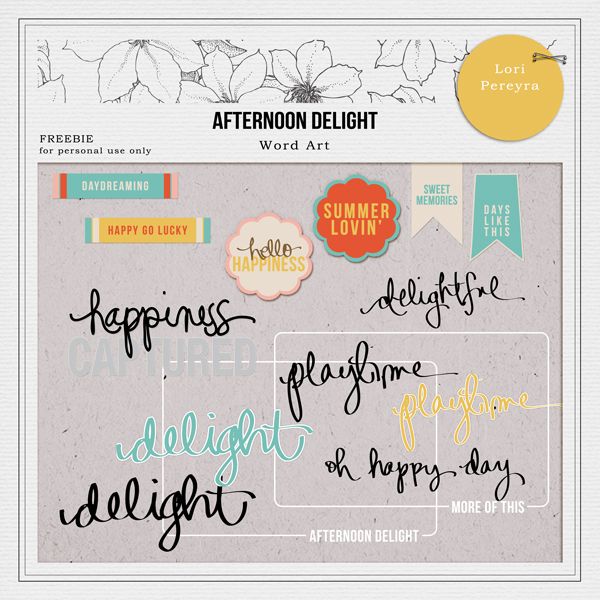 Lori
Pereyra
AFTERNOON DELIGHT
Word Art
FREEBIE
for personal use only
DAYDREAMING
HAPPY GO LUCKY
hello
HAPPINESS
SUMMER
LOVIN'
SWEET
MEMORIES
DAYS
LIKE
THIS
delightful
happiness
CAPTURED
playtime
playtime
delight
oh happy day
delight
MORE OF THIS
AFTERNOON DELIGHT